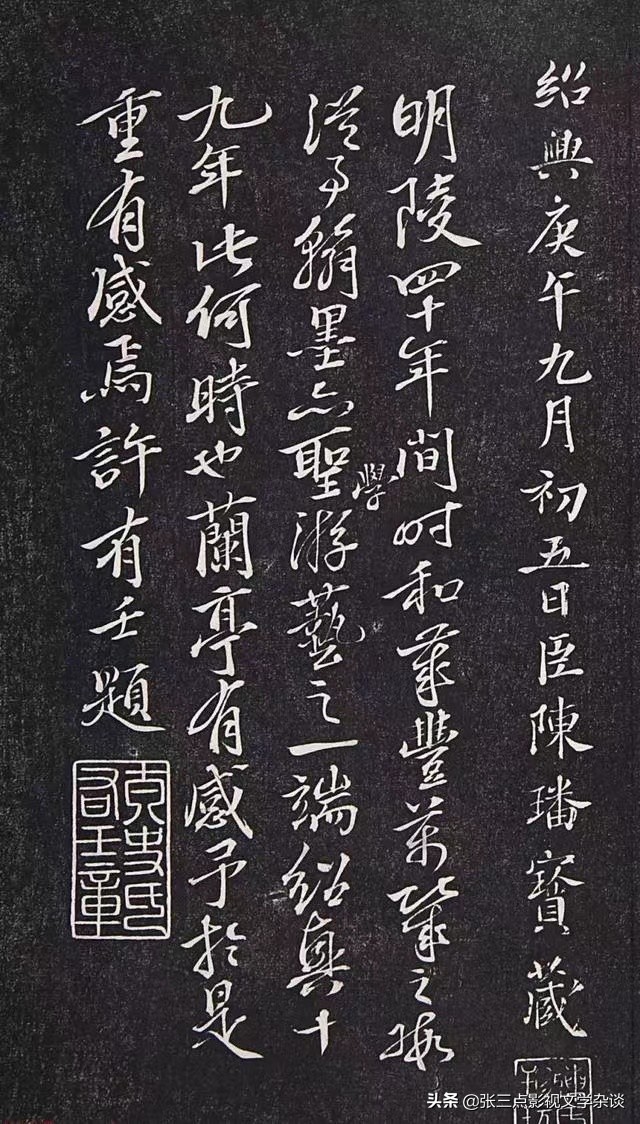 紹興庚午九月初五日臣陳璠寶藏
明陵四十年間时和歲豐萬幾之暇
從事翰墨亦聖學游藝之一端紹興十
九年此何時也蘭亭有感予於是
重有感焉許有壬題
有壬章
头条 @张三点影视文学杂谈